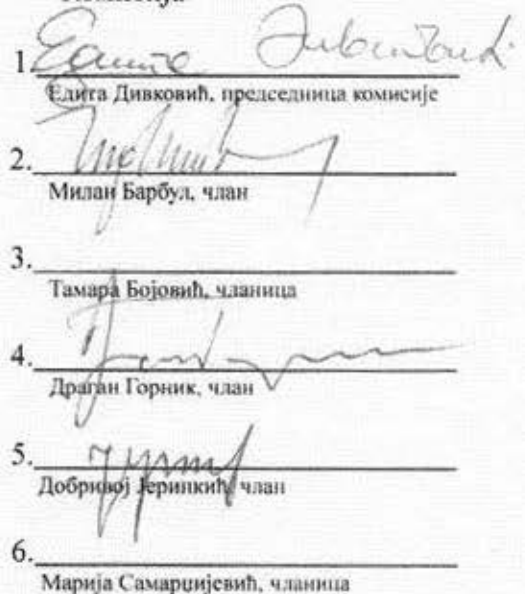 1.
Едита Дивковић, председница комисије
2.
Милан Барбул, члан
3.
Тамара Бојовић, чланица
4.
Драган Горник, члан
5.
Добривој Јеринкић, члан
6.
Марија Самарџијевић, чланица